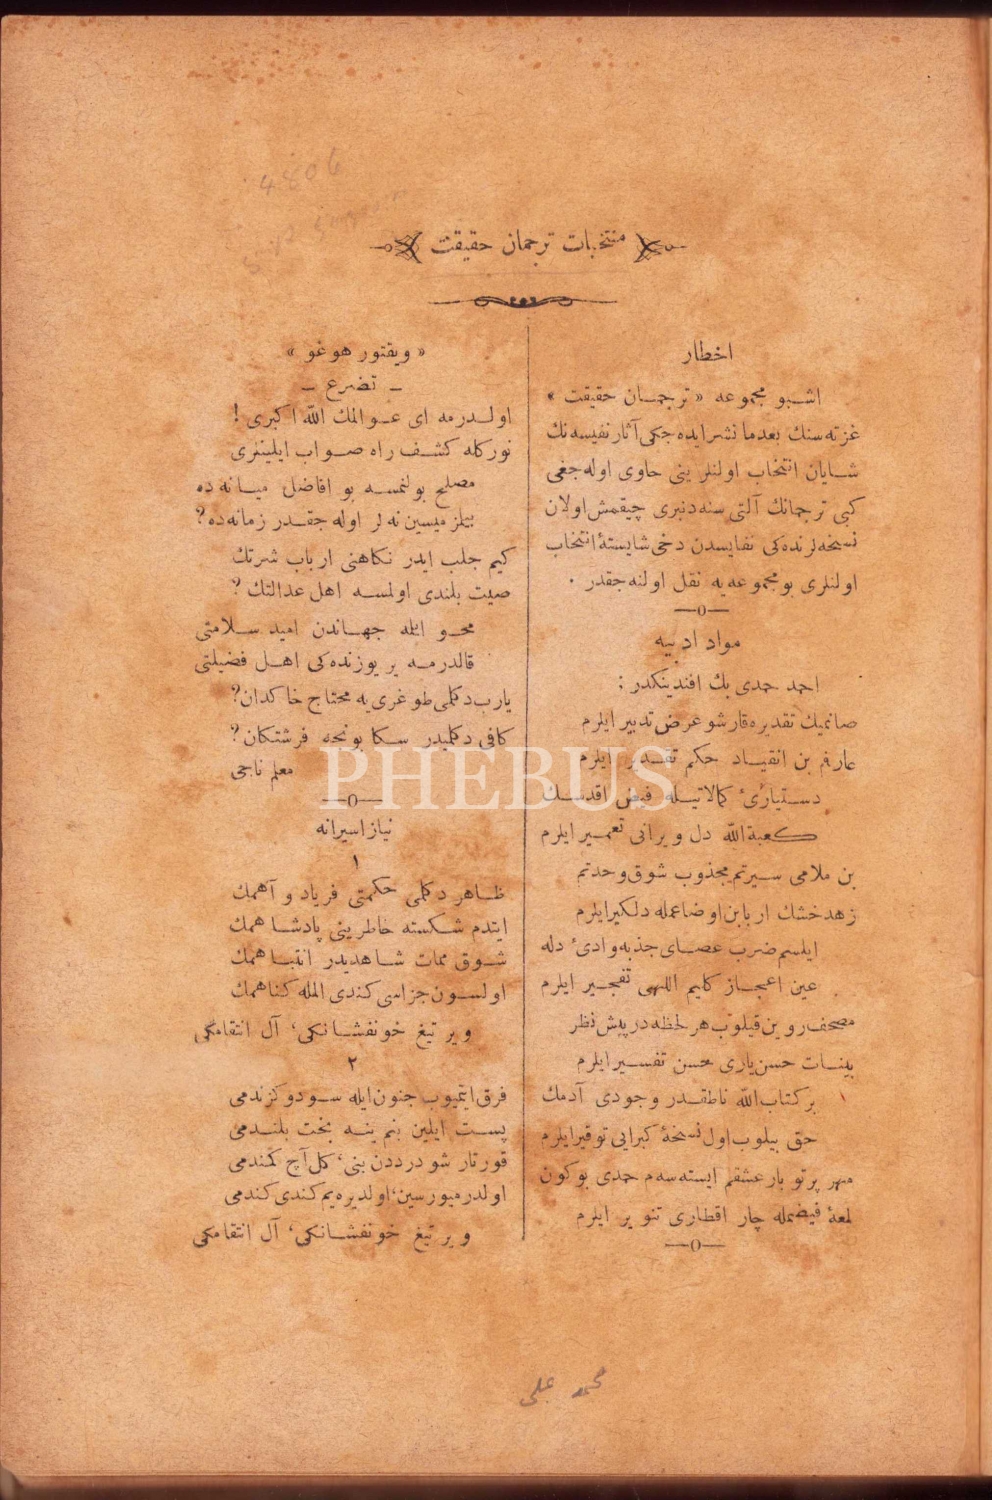 4806
منتخبات ترجمان حقیقت
اخطار
اشبو مجموعه « ترجمان حقیقت »
غزته‌سنك بعدما نشر ایده‌جكی آثار نفیسه‌نك
شایان انتخاب اولنلرینی حاوی اوله‌جغی
كبی ترجمانك آلتی سنه‌دنبری چیقمش اولان
نسخه‌لرنده‌كی نفایسدن دخی شایستهٔ انتخاب
اولنلری بو مجموعه‌یه نقل اولنه‌جقدر .
مواد ادبیه
احمد حمدی بك افندینكدر :
صانمیك تقدیره قارشو عرض تدبیر ایلرم
عارفم بن انقیاد حكم تقدیر ایلرم
دستیارئ كمالاتیله فیض اقدسك
كعبة الله دل ویرانی تعمیر ایلرم
بن ملامی سیرتم مجذوب شوق وحدتم
زهد خشك اربابن اوضاعمله دلكیر ایلرم
ایلسم ضرب عصای جذبه وادئ دله
عین اعجاز كلیم اللهی تفجیر ایلرم
مصحف روین قیلوب هر لحظه در پیش نظر
بینات حسن یاری حسن تفسیر ایلرم
بر كتاب الله ناطقدر وجودی آدمك
حق بیلوب اول نسخهٔ كبرایی توقیر ایلرم
مهر پرتو بار عشقم ایسته‌سه‌م حمدی بوكون
لمعهٔ فیضمله چار اقطاری تنویر ایلرم
« ویقتور هوغو »
– تضرع –
اولدرمه ای عوالمك الله اكبری !
نوركله كشف راه صواب ایلینلری
مصلح بولنمسه بو افاضل میانه‌ده
بیلمز میسین نه‌لر اوله‌جقدر زمانه‌ده؟
كیم جلب ایدر نكاهنی ارباب شرتك
صیت بلندی اولمسه اهل عدالتك ؟
محو ایله جهاندن امید سلامتی
قالدرمه یر یوزنده‌كی اهل فضیلتی
یارب دكلمی طوغری یه محتاج خاكدان؟
كافی دكلمیدر سكا بونجه فرشتكان؟
معلم ناجی
نیاز اسیرانه
١
ظاهر دكلمی حكمتی فریاد و آهمك
ایتدم شكسته خاطرینی پادشاهمك
شوق ممات شاهدیدر انتباهمك
اولسون جزاسی كندی المله كناهمك
ویر تیغ خونفشانكی، آل انتقامكی
٢
فرق ایتمیوب جنون ایله سودوكزندمی
پست ایلین بنم ینه بخت بلندمی
قورتار شو درددن بنی، كل آچ كمندمی
اولدرمیورسین، اولدیره‌یم كندی كندمی
ویر تیغ خونفشانكی، آل انتقامكی
محمد علی
PHEBUS